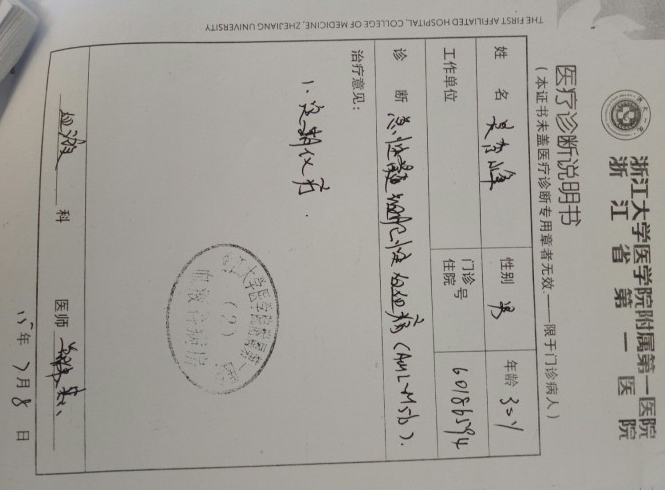 浙江大学医学院附属第一医院
浙江省第一医院
医疗诊断说明书
(本证书未盖医疗诊断专用章者无效——限于门诊病人)
姓名 性别 男 年龄
工作单位 门诊号 住院 60186594
诊断 急性 细胞性白血病(AML-M5b).
治疗意见:
1. 定期化疗.
浙江大学医学院附属第一医院
(9)
血液 科 医师
15年7月8日
THE FIRST AFFILIATED HOSPITAL, COLLEGE OF MEDICINE, ZHEJIANG UNIVERSITY